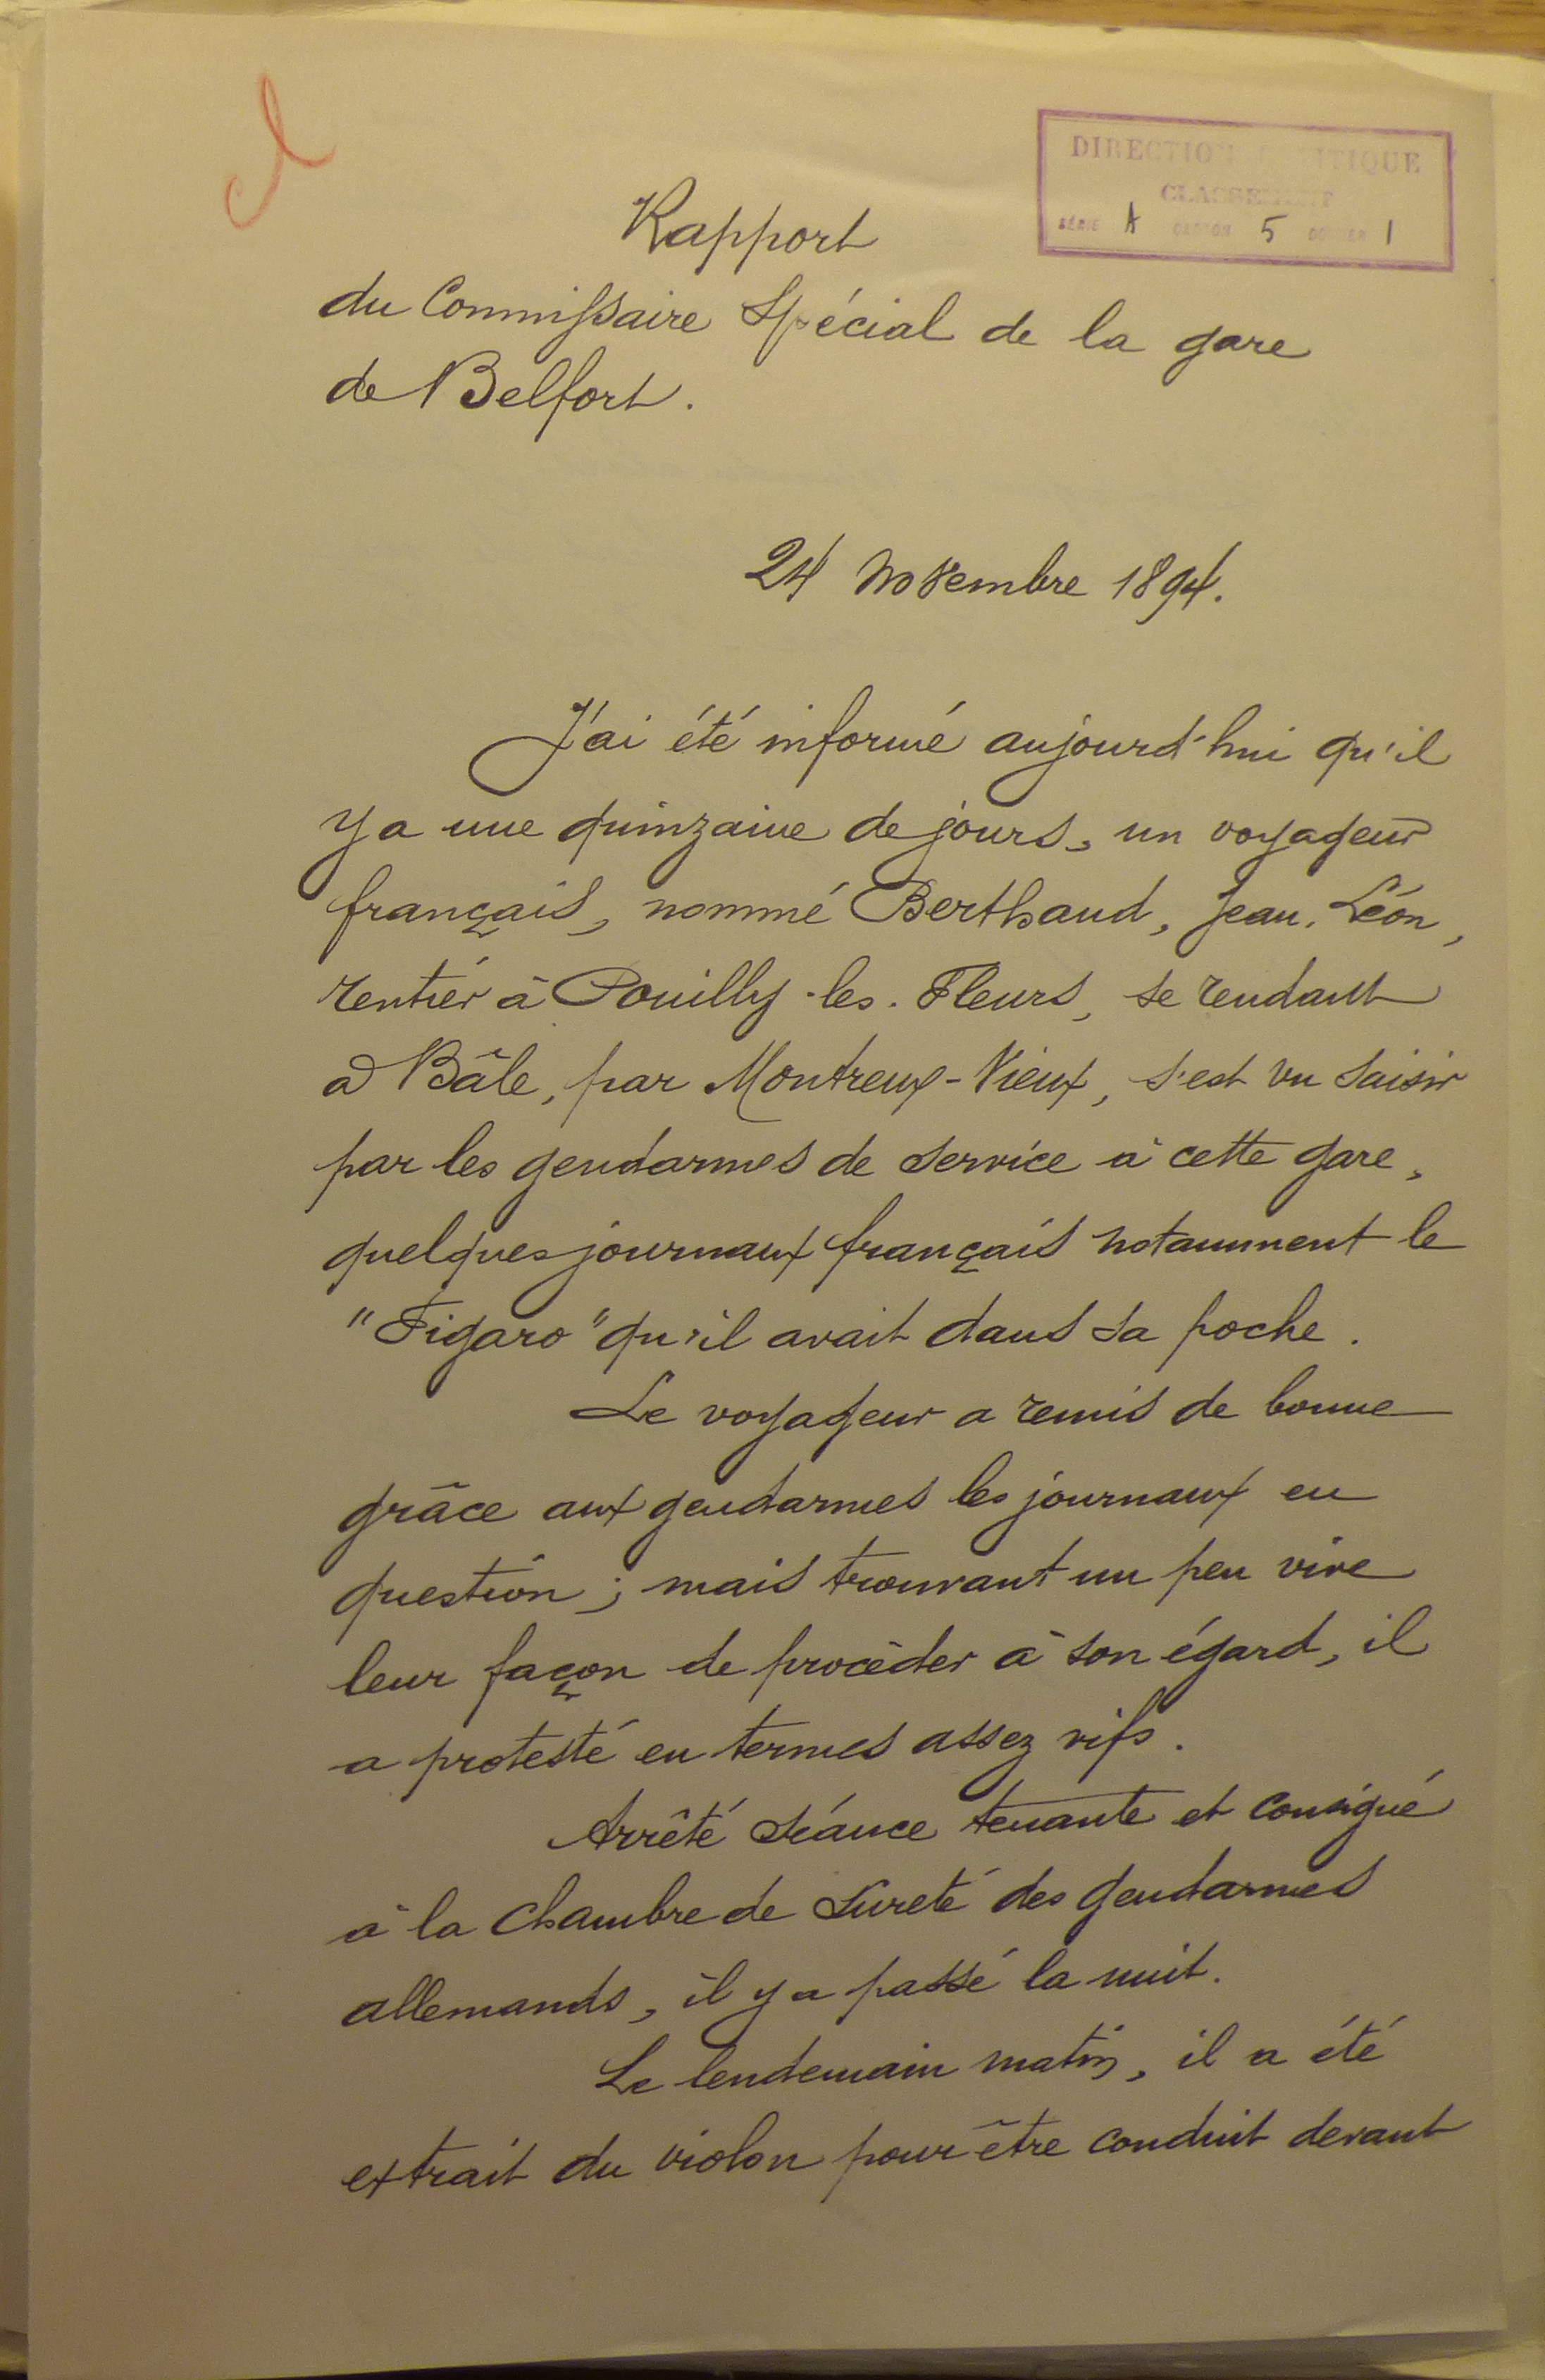 DIRECTION POLITIQUE
CLASSEMENT
SÉRIE A CARTON 5 DOSSIER 1
Rapport
du Commissaire Spécial de la gare
de Belfort.
24 Novembre 1894.
J'ai été informé aujourd'hui qu'il
y a une quinzaine de jours, un voyageur
français, nommé Berthaud, Jean. Léon,
rentier à Pouilly-les-Fleurs, se rendant
à Bâle, par Montreux-Vieux, s'est vu saisir
par les gendarmes de service à cette gare,
quelques journaux français notamment le
"Figaro" qu'il avait dans sa poche.
Le voyageur a remis de bonne
grâce aux gendarmes les journaux en
question ; mais trouvant un peu vive
leur façon de procèder à son égard, il
a protesté en termes assez vifs.
Arrêté séance tenante et consigné
à la chambre de sureté des gendarmes
allemands, il y a passé la nuit.
Le lendemain matin, il a été
extrait du violon pour être conduit devant